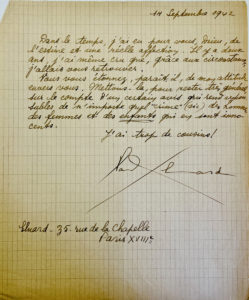 14 Septembre 1942
Dans le temps, j'ai eu pour vous, Drieu, de
l'estime et une réelle affection. Il y a deux
ans, j'ai même cru que, grâce aux circonstances,
j'allais vous retrouver.
Vous vous étonnez, paraît-il, de mon attitude
envers vous. Mettons-la, pour rester
sur le compte d'un certain avis qui rend respon-
sables de n'importe quel "crime" (sic) des hommes
des femmes et des enfants qui en sont inno-
cents.
J'ai trop de cousins!
Paul Eluard
Eluard - 35 rue de la Chapelle
Paris XVIIIe